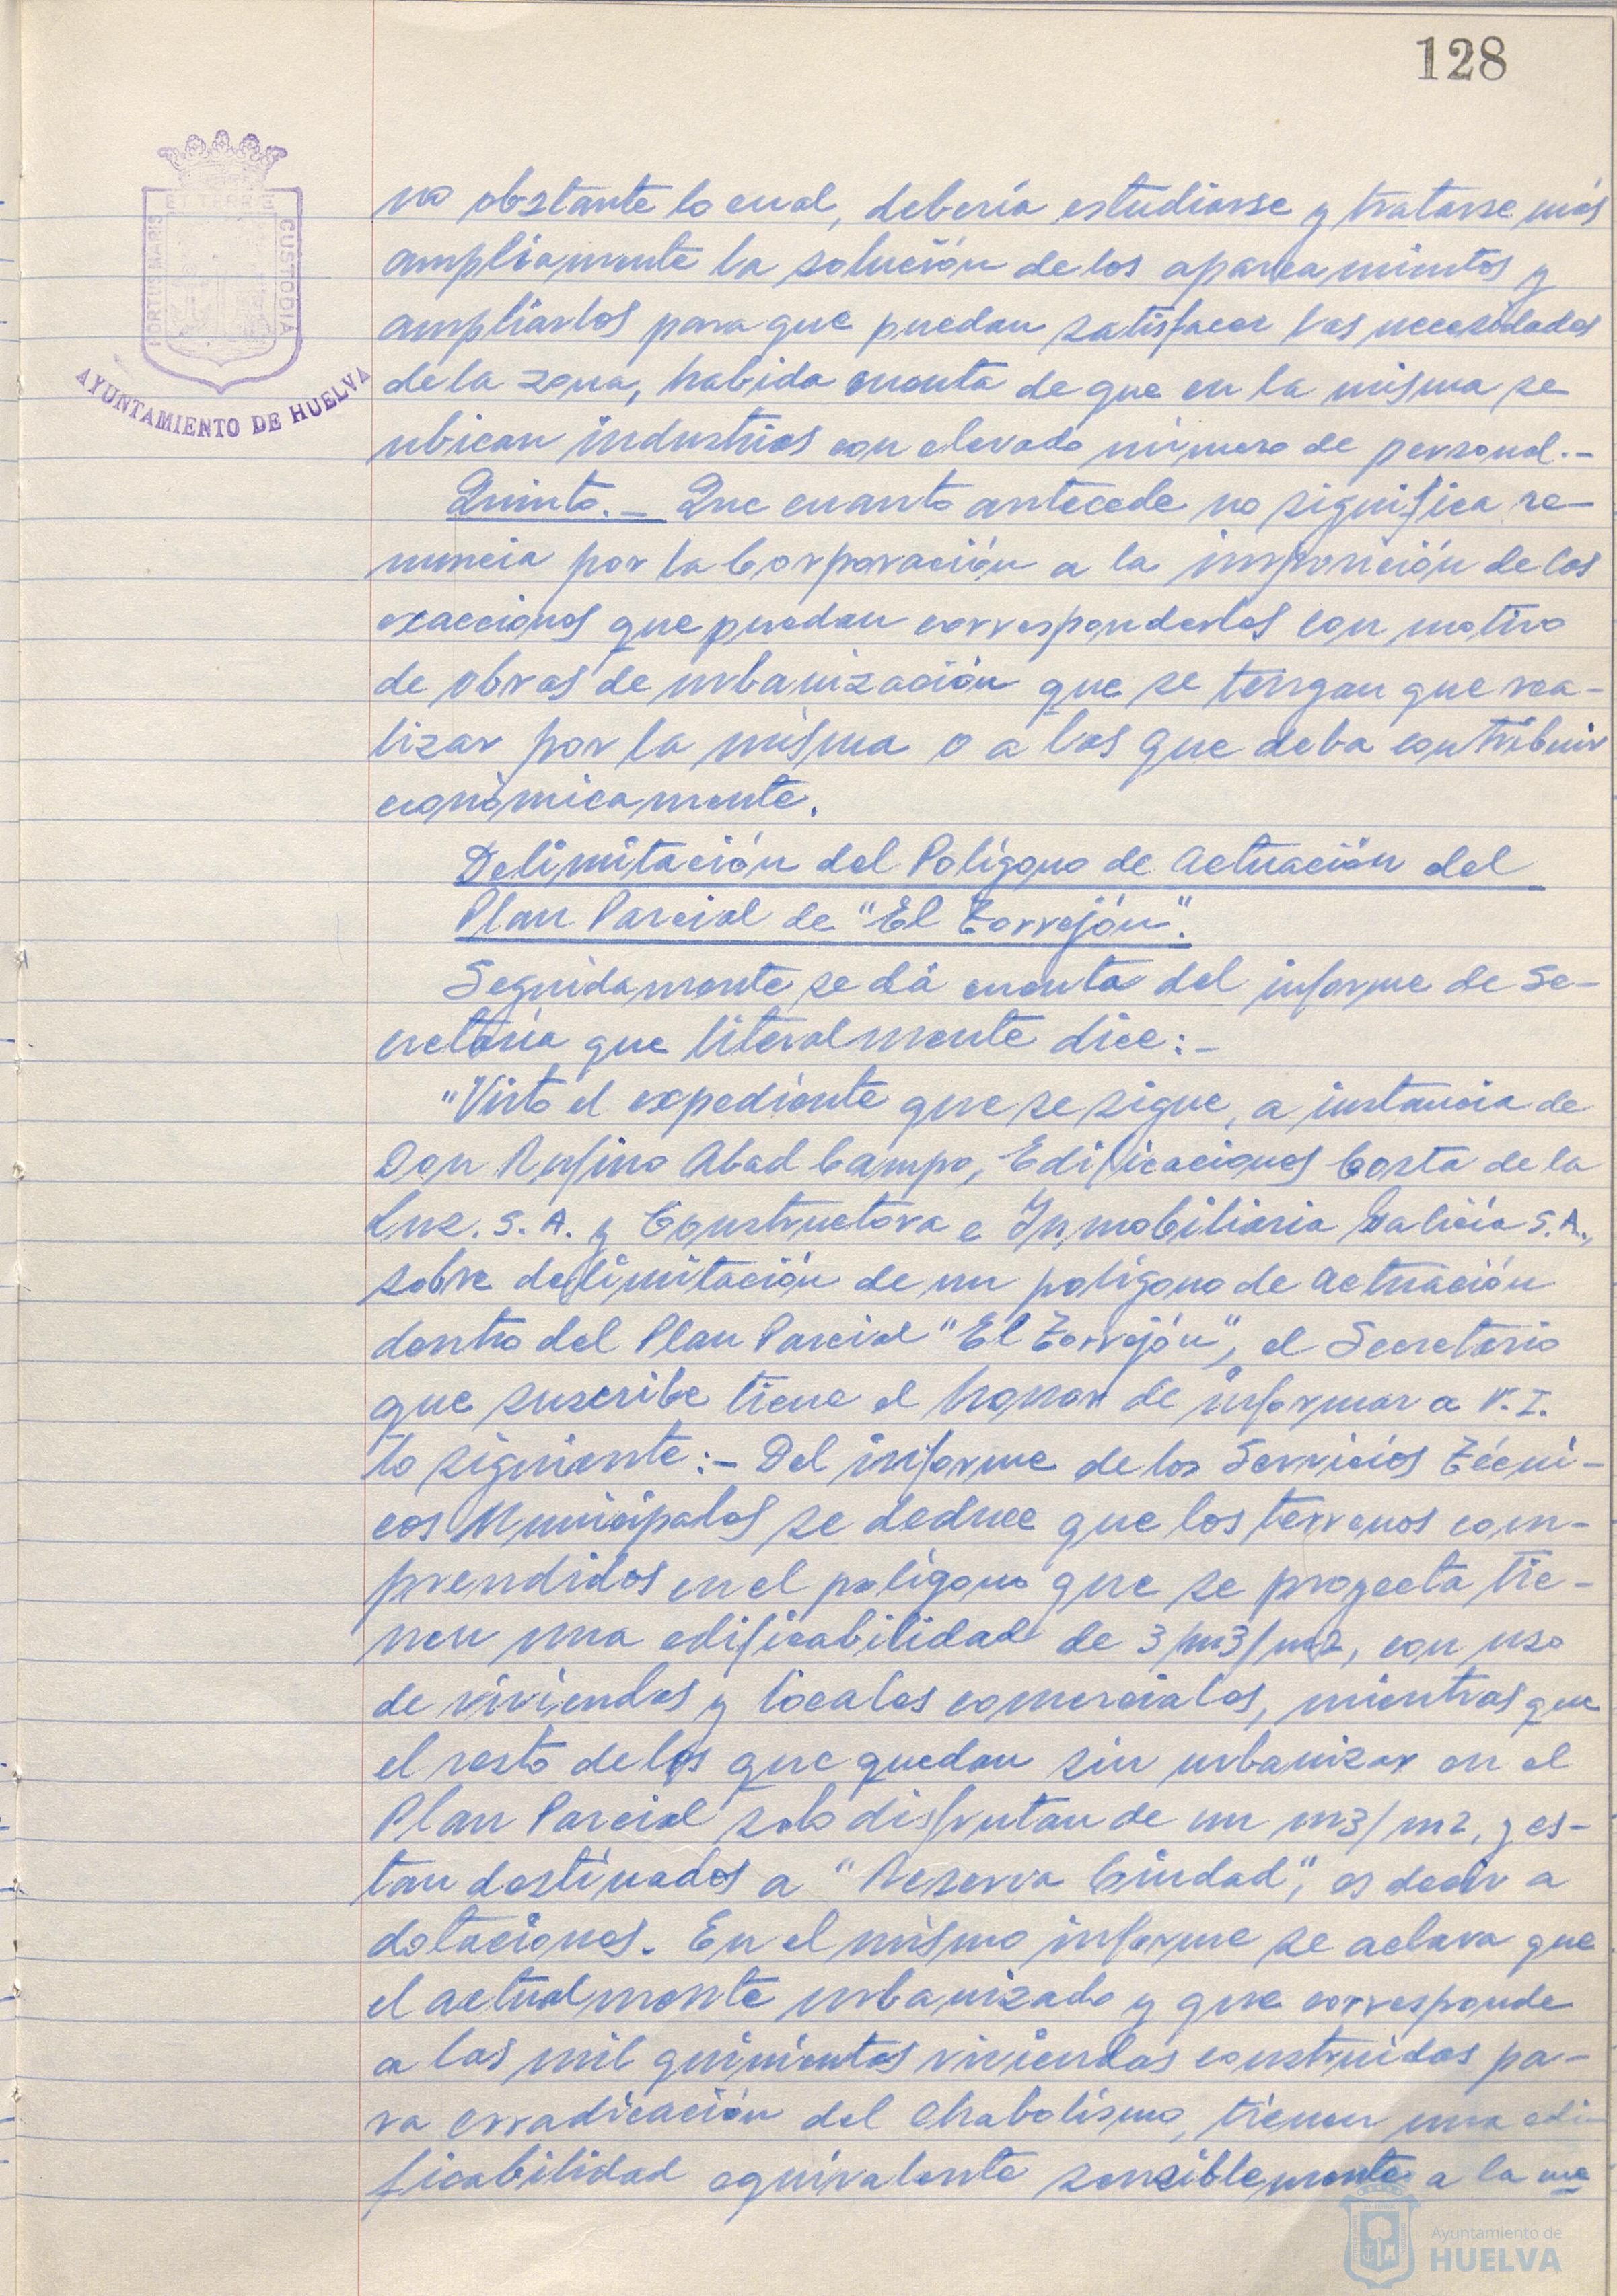 128
PORTUS MARIS
ET TERRE
CUSTODIA
AYUNTAMIENTO DE HUELVA
no obstante lo cual, debería estudiarse y tratarse más
ampliamente la solución de los aparcamientos y
ampliarlos para que puedan satisfacer las necesidades
de la zona, habida cuenta de que en la misma se
ubican industrias con elevado número de personal.-
Quinto.- Que cuanto antecede no significa re-
nuncia por la Corporación a la imposición de las
exacciones que puedan corresponderles con motivo
de obras de urbanización que se tengan que rea-
lizar por la misma o a las que deba contribuir
económicamente.
Delimitación del Polígono de Actuación del
Plan Parcial de "El Torrejón".
Seguidamente se dá cuenta del informe de Se-
cretaría que literalmente dice:-
"Visto el expediente que se sigue, a instancia de
Don Rufino Abad Campo, Edificaciones Costa de la
Luz. S.A. y Constructora e Inmobiliaria Galicia S.A.,
sobre delimitación de un polígono de actuación
dentro del Plan Parcial "El Torrejón", el Secretario
que suscribe tiene el honor de informar a V.I.
lo siguiente:- Del informe de los Servicios Técni-
cos Municipales se deduce que los terrenos com-
prendidos en el polígono que se proyecta tie-
nen una edificabilidad de 3/m3/m2, con uso
de viviendas y locales comerciales, mientras que
el resto de los que quedan sin urbanizar en el
Plan Parcial solo disfrutan de un m3/m2, y es-
tan destinados a "Reserva Ciudad", es decir a
dotaciones. En el mismo informe se aclara que
el actualmente urbanizado y que corresponde
a las mil quinientas viviendas construidas pa-
ra erradicación del chabolismo, tienen una edi-
ficabilidad equivalente sensiblemente a la me
Ayuntamiento de
HUELVA